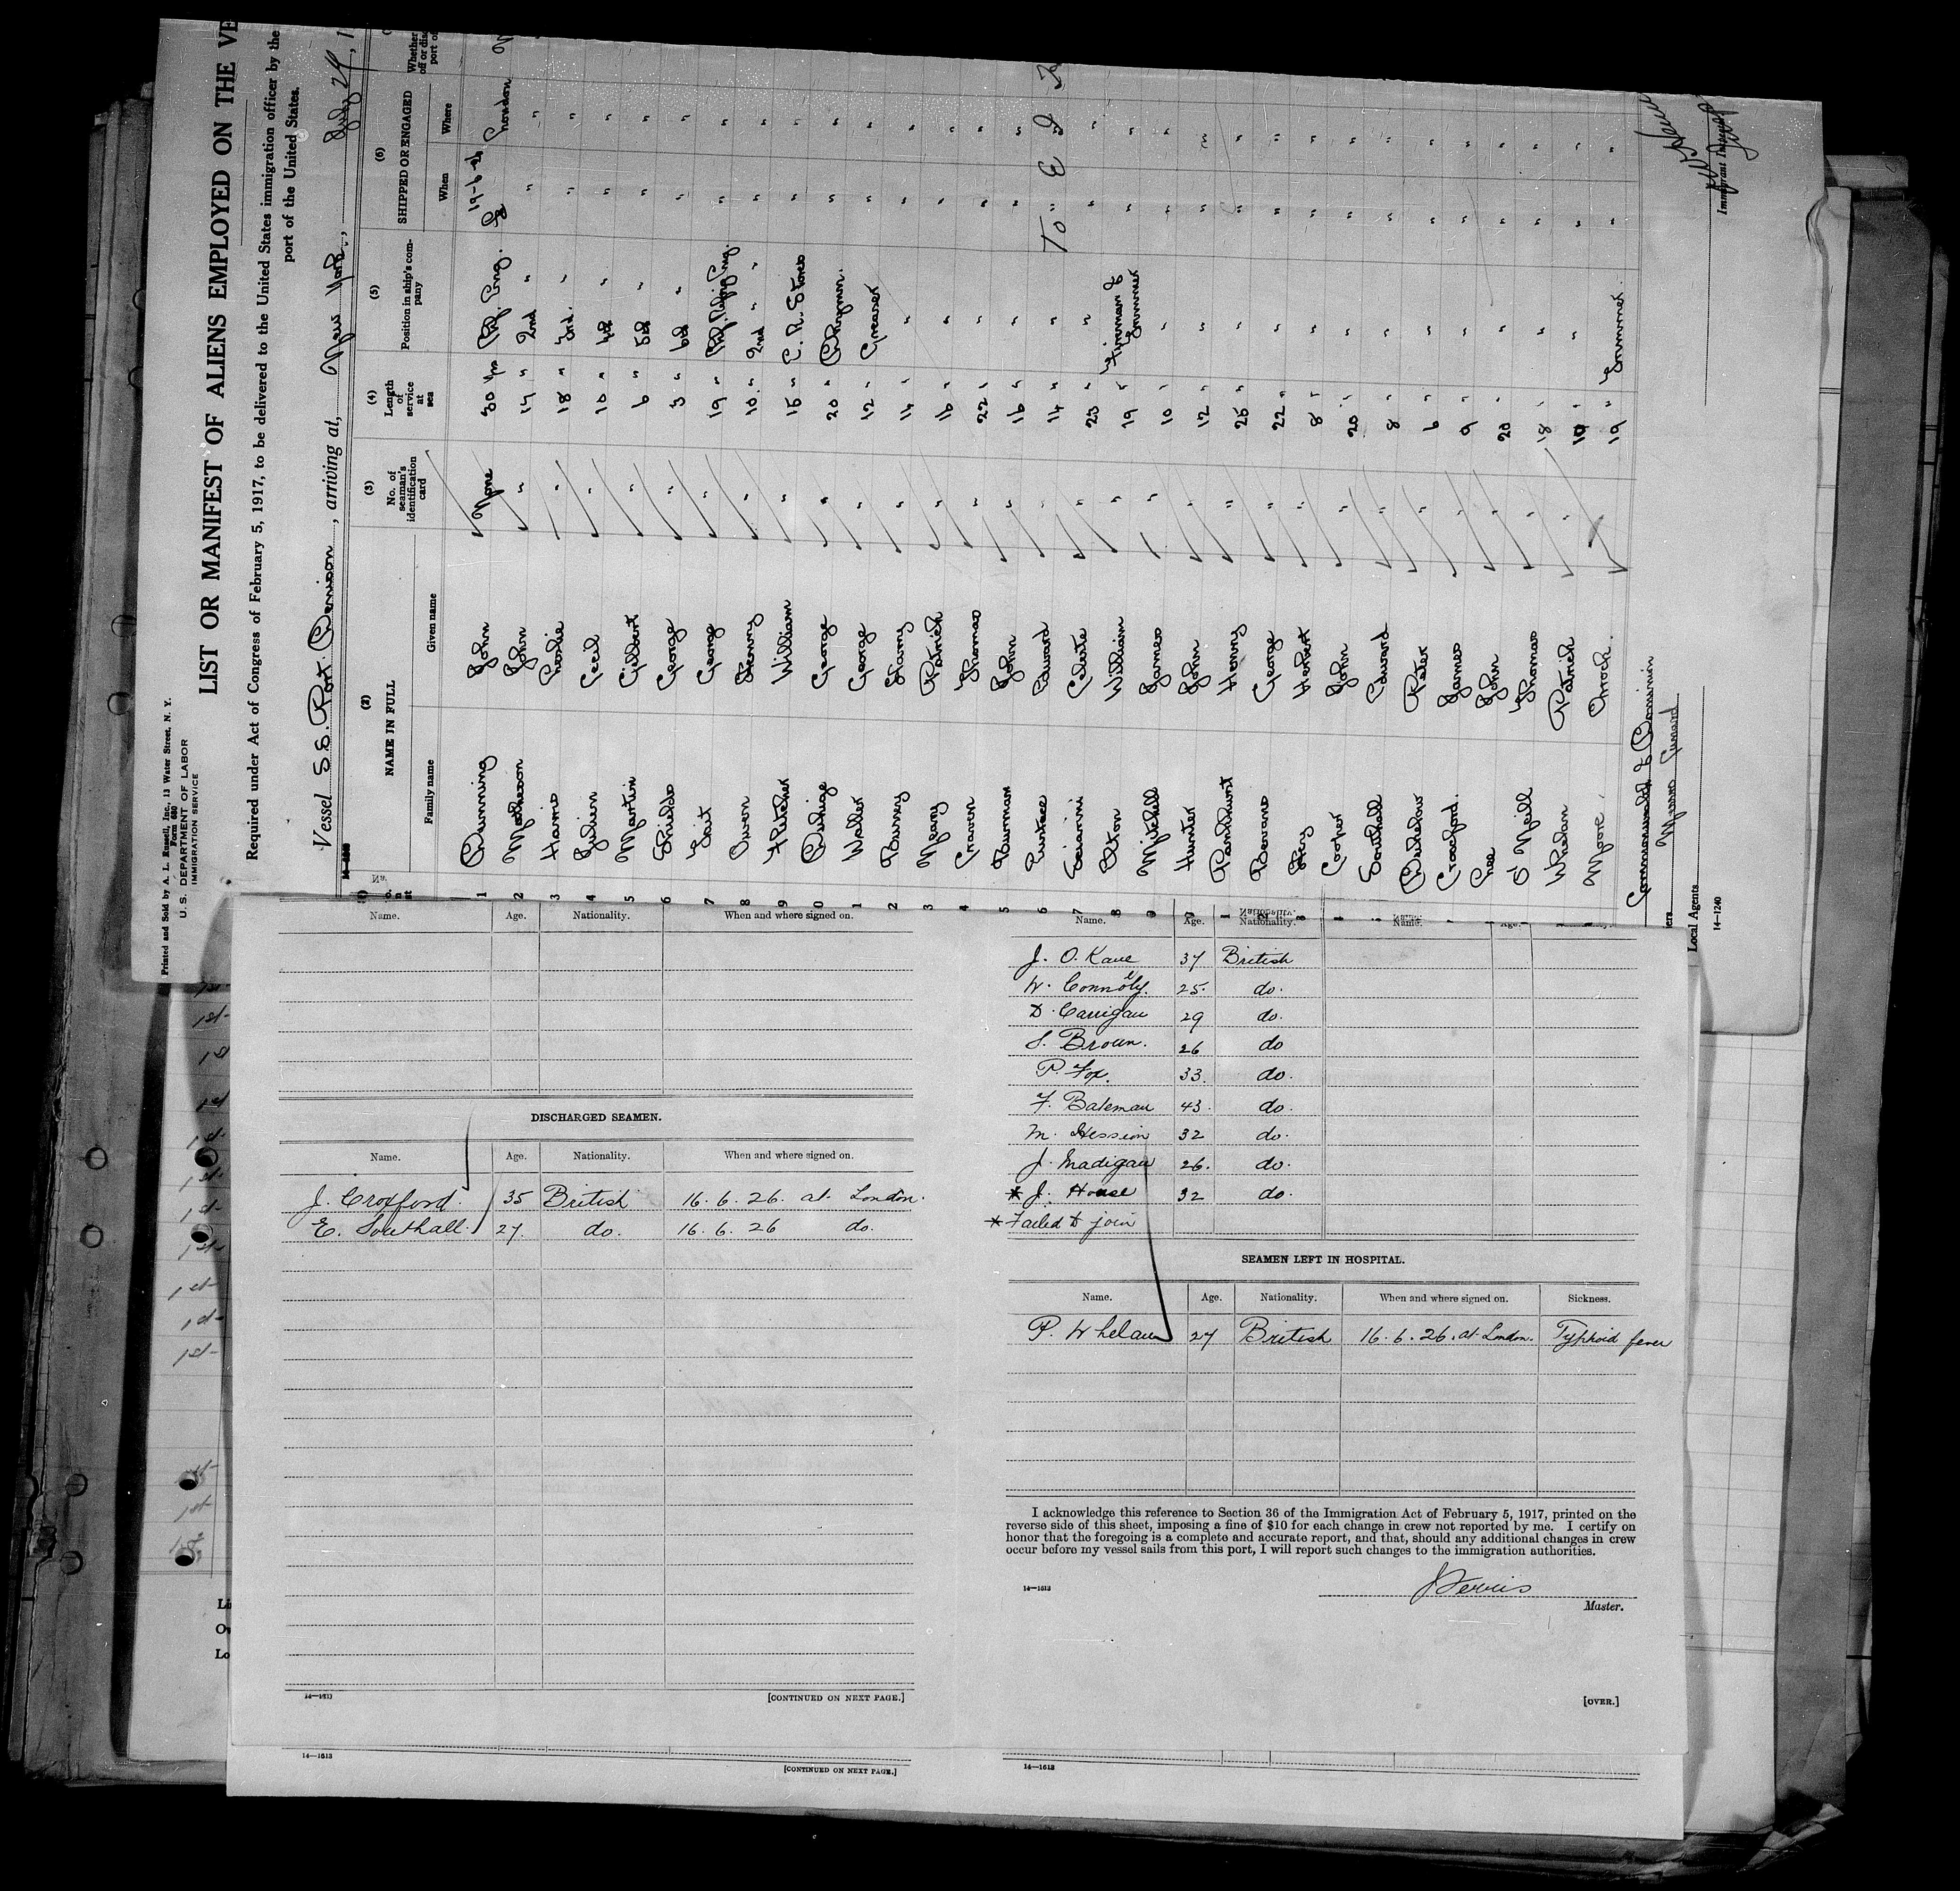 Printed and Sold by A. L. Russell, Inc., 13 Water Street, N. Y.
Form 680
U. S. DEPARTMENT OF LABOR
IMMIGRATION SERVICE
LIST OR MANIFEST OF ALIENS EMPLOYED ON THE VE
Required under Act of Congress of February 5, 1917, to be delivered to the United States immigration officer by the
port of the United States.
Vessel S.S. Port , arriving at, New York, July 29, 1
(2) (3) (4) (5) (6)
NAME IN FULL No. of seaman's identification card Length of service at sea Position in ship's company SHIPPED OR ENGAGED Whether
Family name Given name When Where
1 Dunning John None 30 yrs Chf. Eng. 19-6-26 London
2 Matheson John " 14 " 2nd " " "
3 Harris Leslie " 18 " 3rd " " "
4 Cecil " 10 " 4th " " "
5 Martin Gilbert " 6 " 5th " " "
6 Shields George " 3 " 6th " " "
7 Tait George " 19 " Chf. Refrig Eng. " "
8 Owen Henry " 10 " 2nd " " " "
9 Fletcher William " 15 " E. R. Stores " "
0 George " 20 " " "
1 Waller George " 12 " Greaser " "
2 Harry " 14 " " " "
3 Meany Patrick " 16 " " " "
4 Craven Thomas " 22 " " " "
5 John " 16 " " " "
6 Edward " 14 " " " "
7 Celeste " 23 " " " "
8 Elton William " 19 " Fireman & Trimmer " "
9 Mitchell James " 10 " " " "
Hunter John " 12 " " " "
1 Pankhurst Henry " 25 " " " "
2 George " 22 " " " "
3 Herbert " 8 " " " "
Cooper John " 20 " " " "
Southall Edward " 8 " " " "
Peter " 6 " " " "
Croxford James " 9 " " " "
John " 20 " " " "
O'Neill Thomas " 18 " " " "
Whelan Patrick " 10 " " " "
Moore 19 " Trimmer " "
Commonwealth & Dominion
Local Agents
Immigrant Inspector
14—1240
Name. Age. Nationality. When and where signed on.
DISCHARGED SEAMEN.
Name. Age. Nationality. When and where signed on.
J. Croxford. 35 British 16. 6. 26. at London.
E. Southall. 27. do. 16. 6. 26 do.
14—1613 [CONTINUED ON NEXT PAGE.]
Name. Age. Nationality. Name. Age.
J. O. Kane 37 British
W. Connolly. 25. do.
D. Carrigan 29 do.
S. Brown. 26 do
P. Fox. 33. do.
F. Bateman 43. do.
M. Hession 32 do.
J. Madigan 26. do.
* J. House 32 do.
* Failed to join
SEAMEN LEFT IN HOSPITAL.
Name. Age. Nationality. When and where signed on. Sickness.
P. Whelan 27 British 16. 6. 26. at London. Typhoid fever
I acknowledge this reference to Section 36 of the Immigration Act of February 5, 1917, printed on the
reverse side of this sheet, imposing a fine of $10 for each change in crew not reported by me. I certify on
honor that the foregoing is a complete and accurate report, and that, should any additional changes in crew
occur before my vessel sails from this port, I will report such changes to the immigration authorities.
14—1613
Master.
[OVER.]
14—1613 [CONTINUED ON NEXT PAGE.] 14—1613